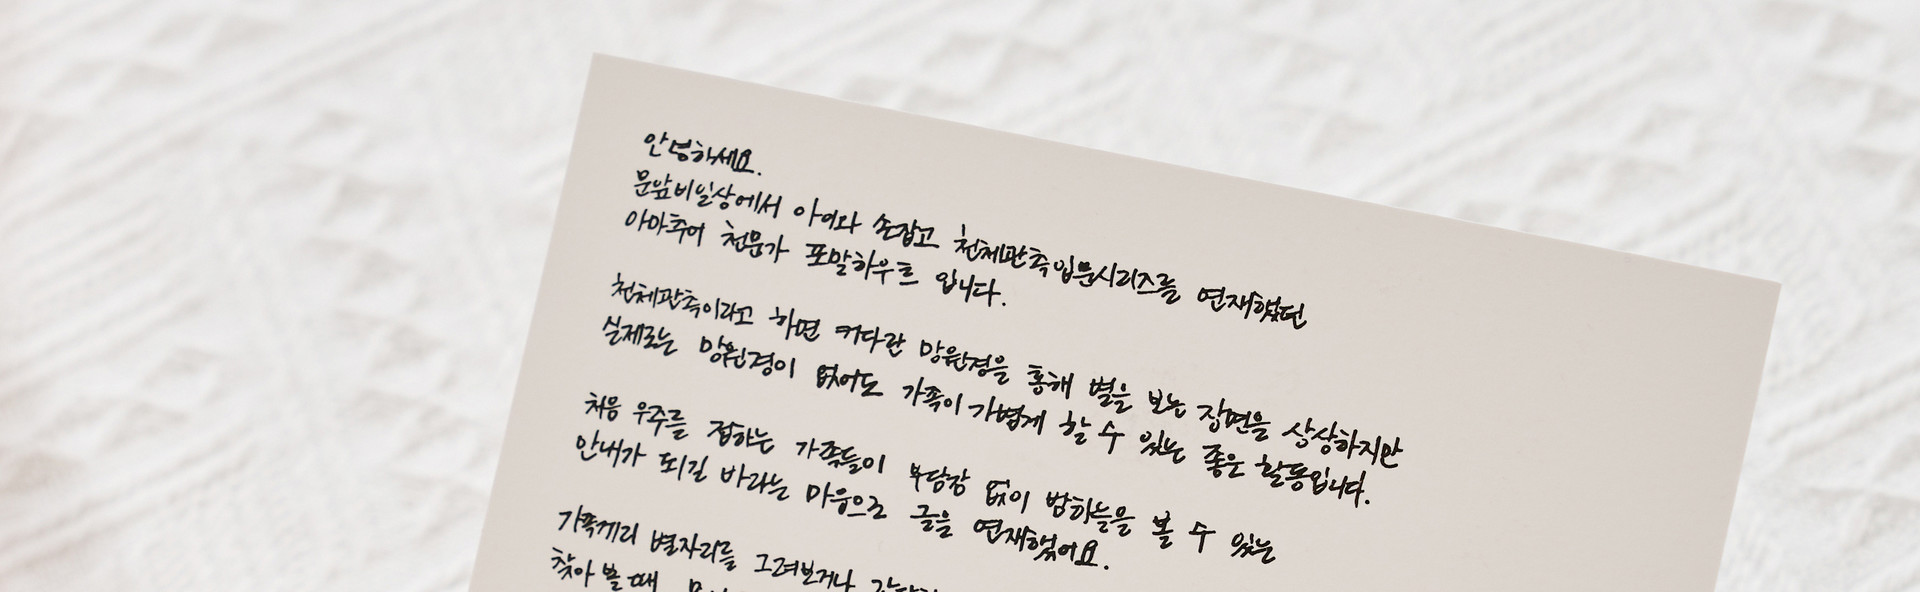 안녕하세요.
문앞비일상에서 아이와 손잡고 천체관측입문시리즈를 연재했던
아마추어 천문가 포말하우트 입니다.
천체관측이라고 하면 커다란 망원경을 통해 별을 보는 장면을 상상하지만
실제로는 망원경이 없어도 가족이 가볍게 할 수 있는 좋은 활동입니다.
처음 우주를 접하는 가족들이 부담감 없이 밤하늘을 볼 수 있는
안내가 되길 바라는 마음으로 글을 연재했어요.
가족끼리 별자리를 그려보거나
찾아 볼 때